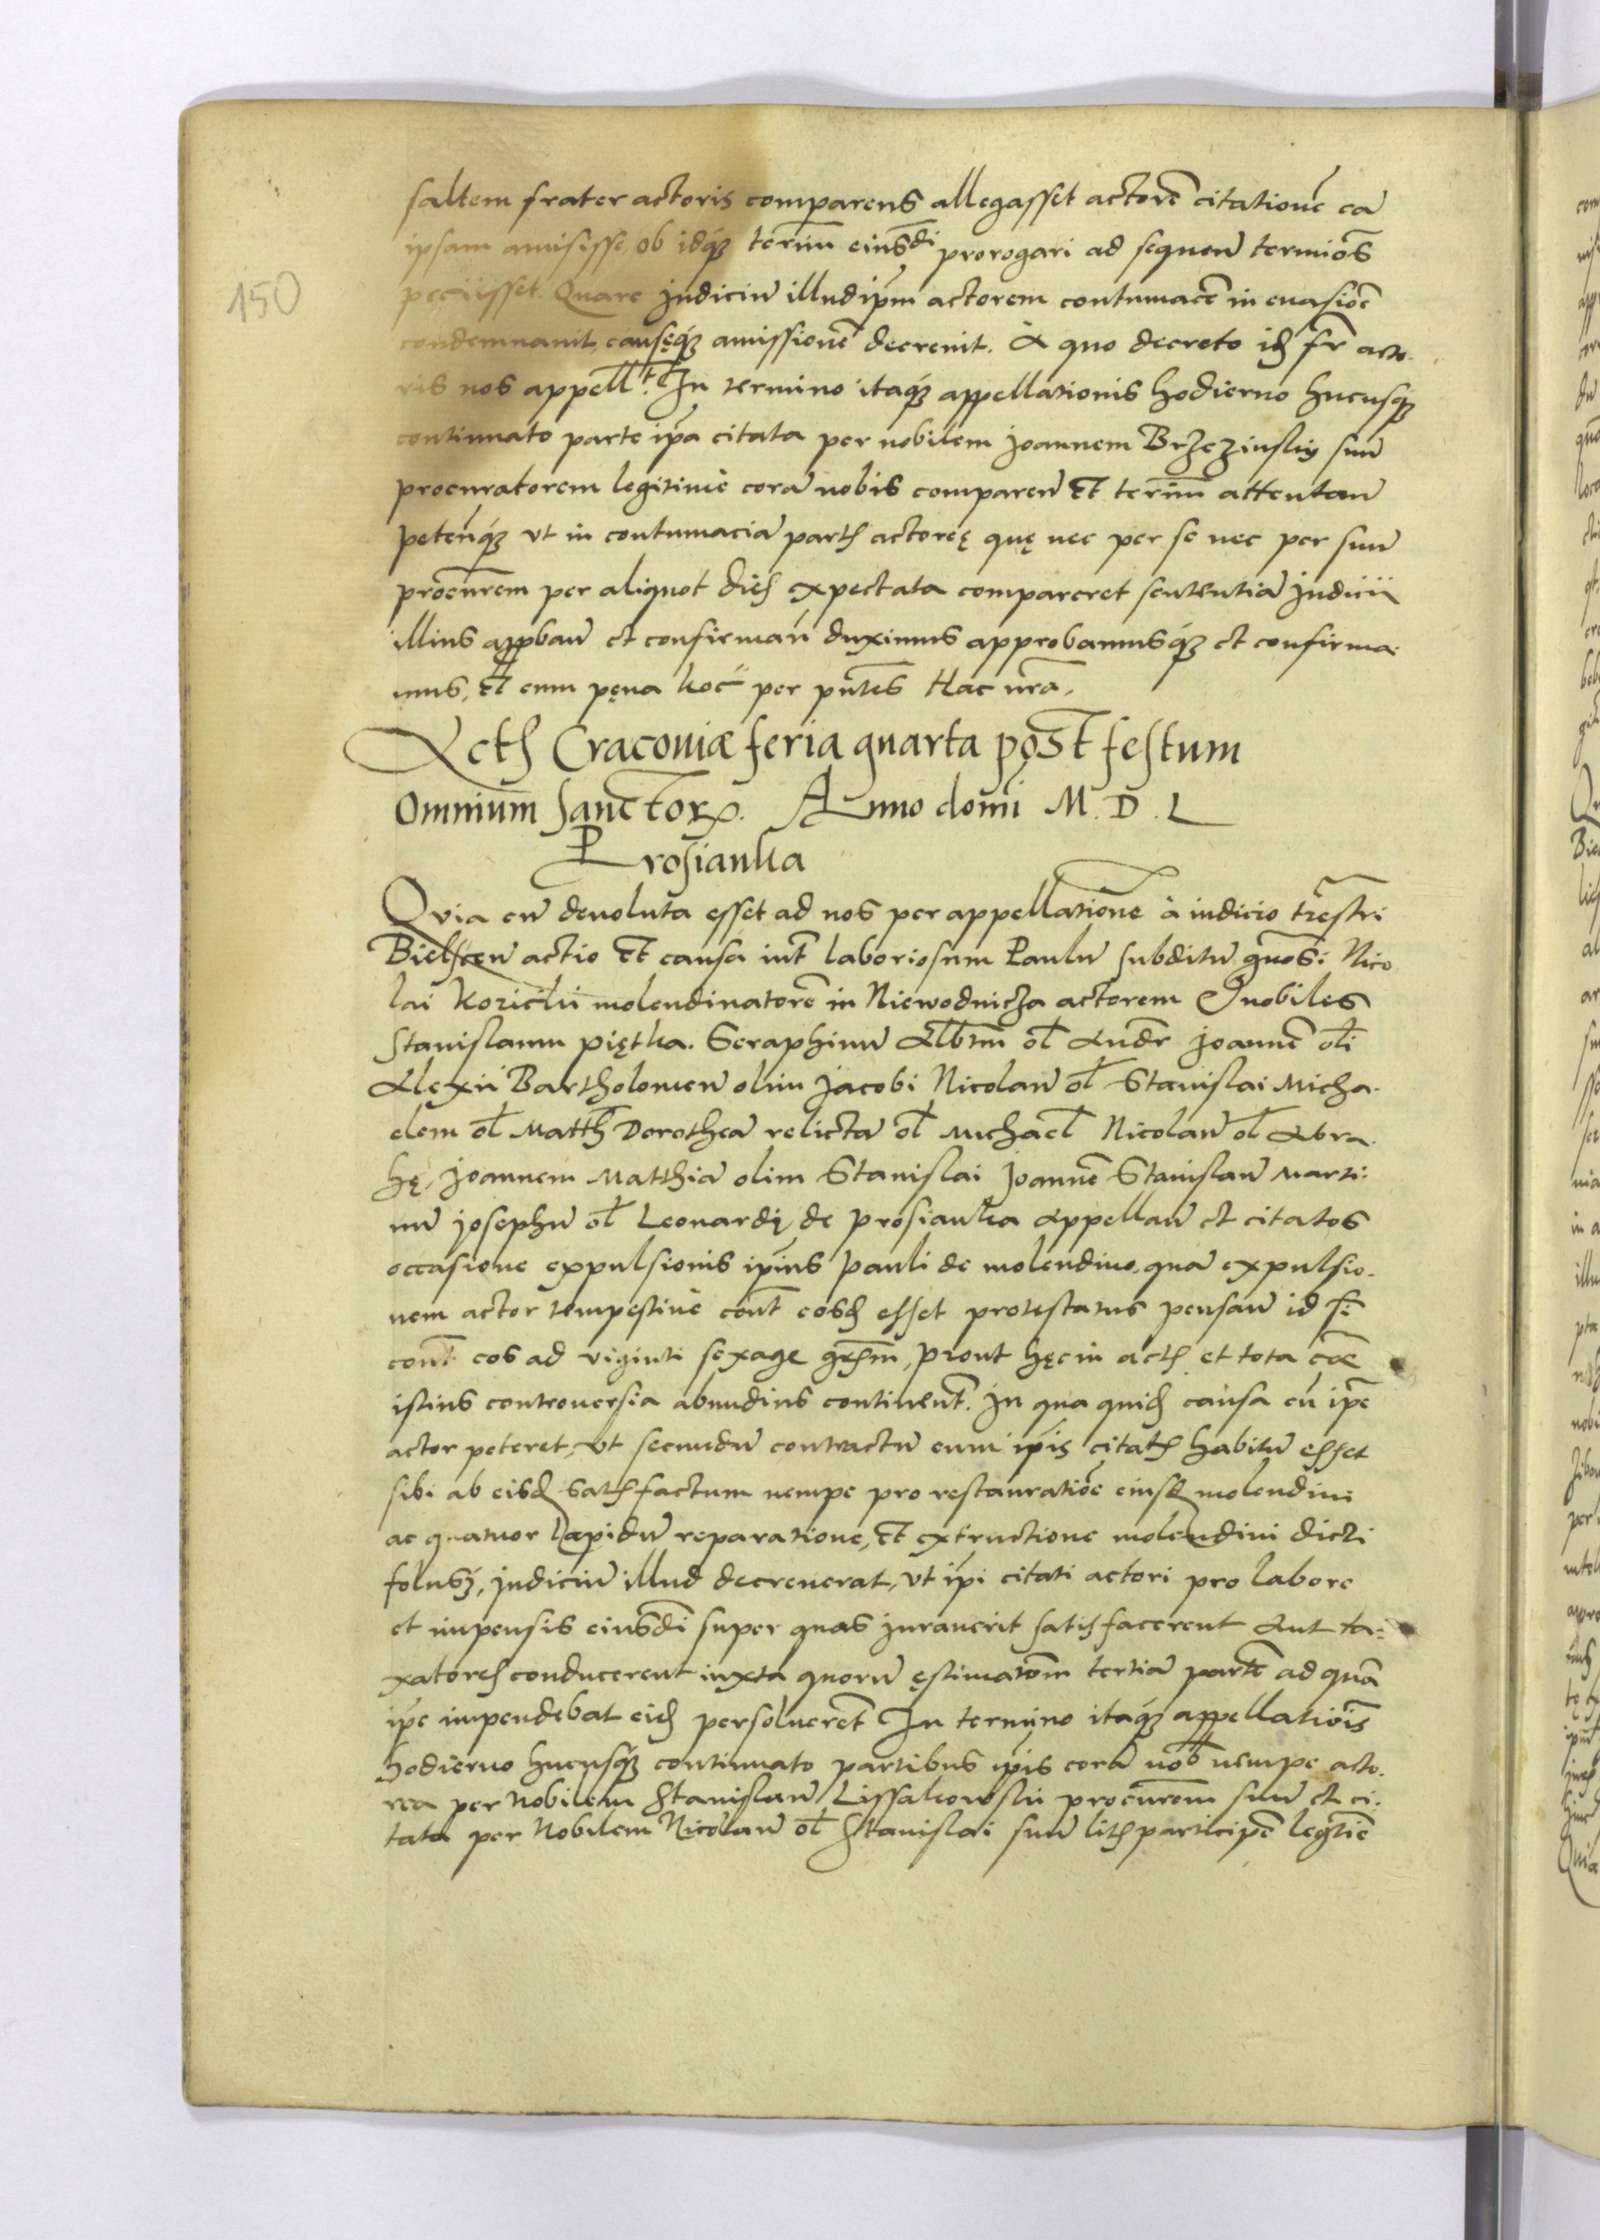 150
saltem frater actoris comparens allegasset actorē citationē eā
ipsam amisisse, ob idq3 terīm eiusdī prorogari ad sequeñ termiōs
peciisset. Quare Judiciū illud ip̄m actorem contumacē in euasiōē
condemnauit, causęq3 amissionē decreuit. A quo decreto idē fr̄ acto-
ris nos appellt. In termino itaq3 appellationis hodierno hucusq3
continuato parte ip̄a citata per nobilem Joannem Brzezinskÿ suū
procuratorem legitimè corā nobis compareñ Et terīm attentañ
peteñq3 vt in contumaciā partis actoreę quę nec per se nec per suū
procurem per aliquot dies expectata compareret sententiā Judicii
illius appbañ et confirmañ duximus approbamusq3 et confirma-
mus, Et cum pęna koc̄ per pn̄tes Hac nr̄a.
Actis Craconiæ feria quarta pǫst festum
Omnium Sanctorꝝ. Anno domi M. D. L
Prosianka
Qvia cū deuoluta esset ad nos per appellationē à iudicio tr̄estri
Bielsceñ actio Et causa int̄ laboriosum Paulū subditū gnosi Nico
lai Koziclii molendinatorē in Niewodnicza actorem Q nobiles
Stanislaum piętka. Seraphinū Albtm̄ ol̄ Andr̄ Joannē oli
Alexii Bartholomeū olim Jacobi Nicolaū ol̄ Stanislai Micha-
elem ol̄ Matth̄ Dorotheā relictā ol̄ Michael̄ Nicolaū ol̄ Abra-
hę, Joannem Matthiā olim Stanislai Joannē Stanislaū Marti-
nū Josephū ol̄ Leonardi de Prosianka Appellañ et citatos
occasione expulsionis ip̄ius Pauli de molendino, quā expulsio-
nem actor tempestiuè cont̄ eosd̄ esset protestatus pensañ id s̄i
cont̄ eos ad viginti sexage gr̄hm, prout hęc in actis et tota cōē
istius controuersia abundius continent̄. In qua quid̄ causa cū ip̄e
actor peteret, vt secundū contractū cum ip̄is citatis habitū esset
sibi ab eisd̄ satisfactum nempe pro restauratiōē eiusd̄ molendini
ac quatuor lapidū reparatione, Et extructione molendini dicti
folusz, Judiciū illud decreuerat, vt ip̄i citati actori pro labore
et impensis eiusdī super quas iurauerit satisfacerent Aut ta-
xatores conducerent iuxta quorū ęstimatōm tertiā partē ad quā
ip̄e impendebat eid̄ persoluerēt In termino itaq3 appellatiōis
hodierno hucusq3 continuato partibus ip̄is corā nob̄ nempe acto-
rea per Nobilem Stanislaū Lissakowskii procurom̄ suū et ci-
tata per Nobilem Nicolaū ol̄ Stanislai suū litis participē legitiē